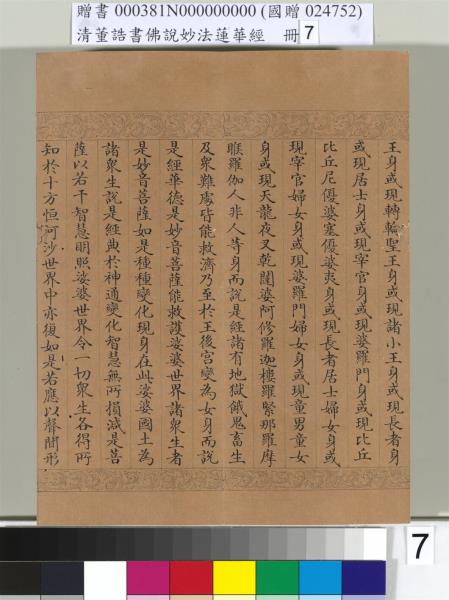 贈書 000381N000000000 (國贈 024752)
清董誥書佛說妙法蓮華經 冊 7
王身或現轉輪聖王身或現諸小王身或現長者身
或現居士身或現宰官身或現婆羅門身或現比丘
比丘尼優婆塞優婆夷身或現長者居士婦女身或
現宰官婦女身或現婆羅門婦女身或現童男童女
身或現天龍夜叉乾闥婆阿修羅迦樓羅緊那羅摩
睺羅伽人非人等身而說是經諸有地獄餓鬼畜生
及衆難處皆能救濟乃至於王後宮變為女身而說
是經華德是妙音菩薩能救護娑婆世界諸衆生者
是妙音菩薩如是種種變化現身在此娑婆國土為
諸衆生說是經典於神通變化智慧無所損減是菩
薩以若干智慧明照娑婆世界令一切衆生各得所
知於十方恒河沙世界中亦復如是若應以聲聞形
7